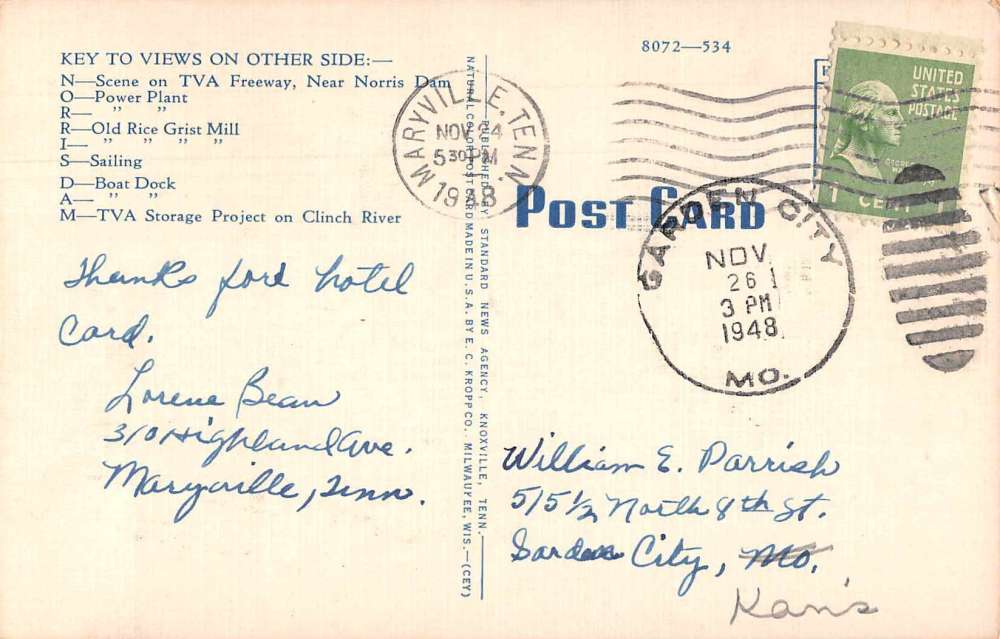 8072—534
KEY TO VIEWS ON OTHER SIDE:—
N—Scene on TVA Freeway, Near Norris Dam
O—Power Plant
R— " "
R—Old Rice Grist Mill
I— " " " "
S—Sailing
D—Boat Dock
A— " "
M—TVA Storage Project on Clinch River
Thanks for hotel
Card.
Lorene Bean
310 Highland Ave.
Maryville, Tenn.
PUBLISHED BY STANDARD NEWS AGENCY, KNOXVILLE, TENN.
NATURAL COLOR POST CARD MADE IN U.S.A. BY E. C. KROPP CO., MILWAUKEE, WIS.—(CEY)
MARYVILLE, TENN.
NOV 24
5 30 PM
1948
POST CARD
UNITED
STATES
POSTAGE
1 CENT 1
GARDEN CITY
NOV
26
3 PM
1948
MO.
William E. Parrish
515½ North 8th St.
Garden City, Mo.
Kans